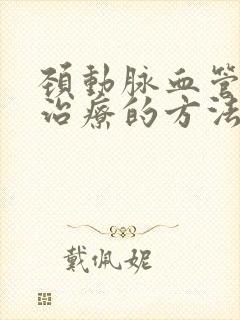 頚動脉血管
治療的方法
戴佩妮